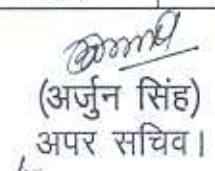 (अर्जुन सिंह)
अपर सचिव।